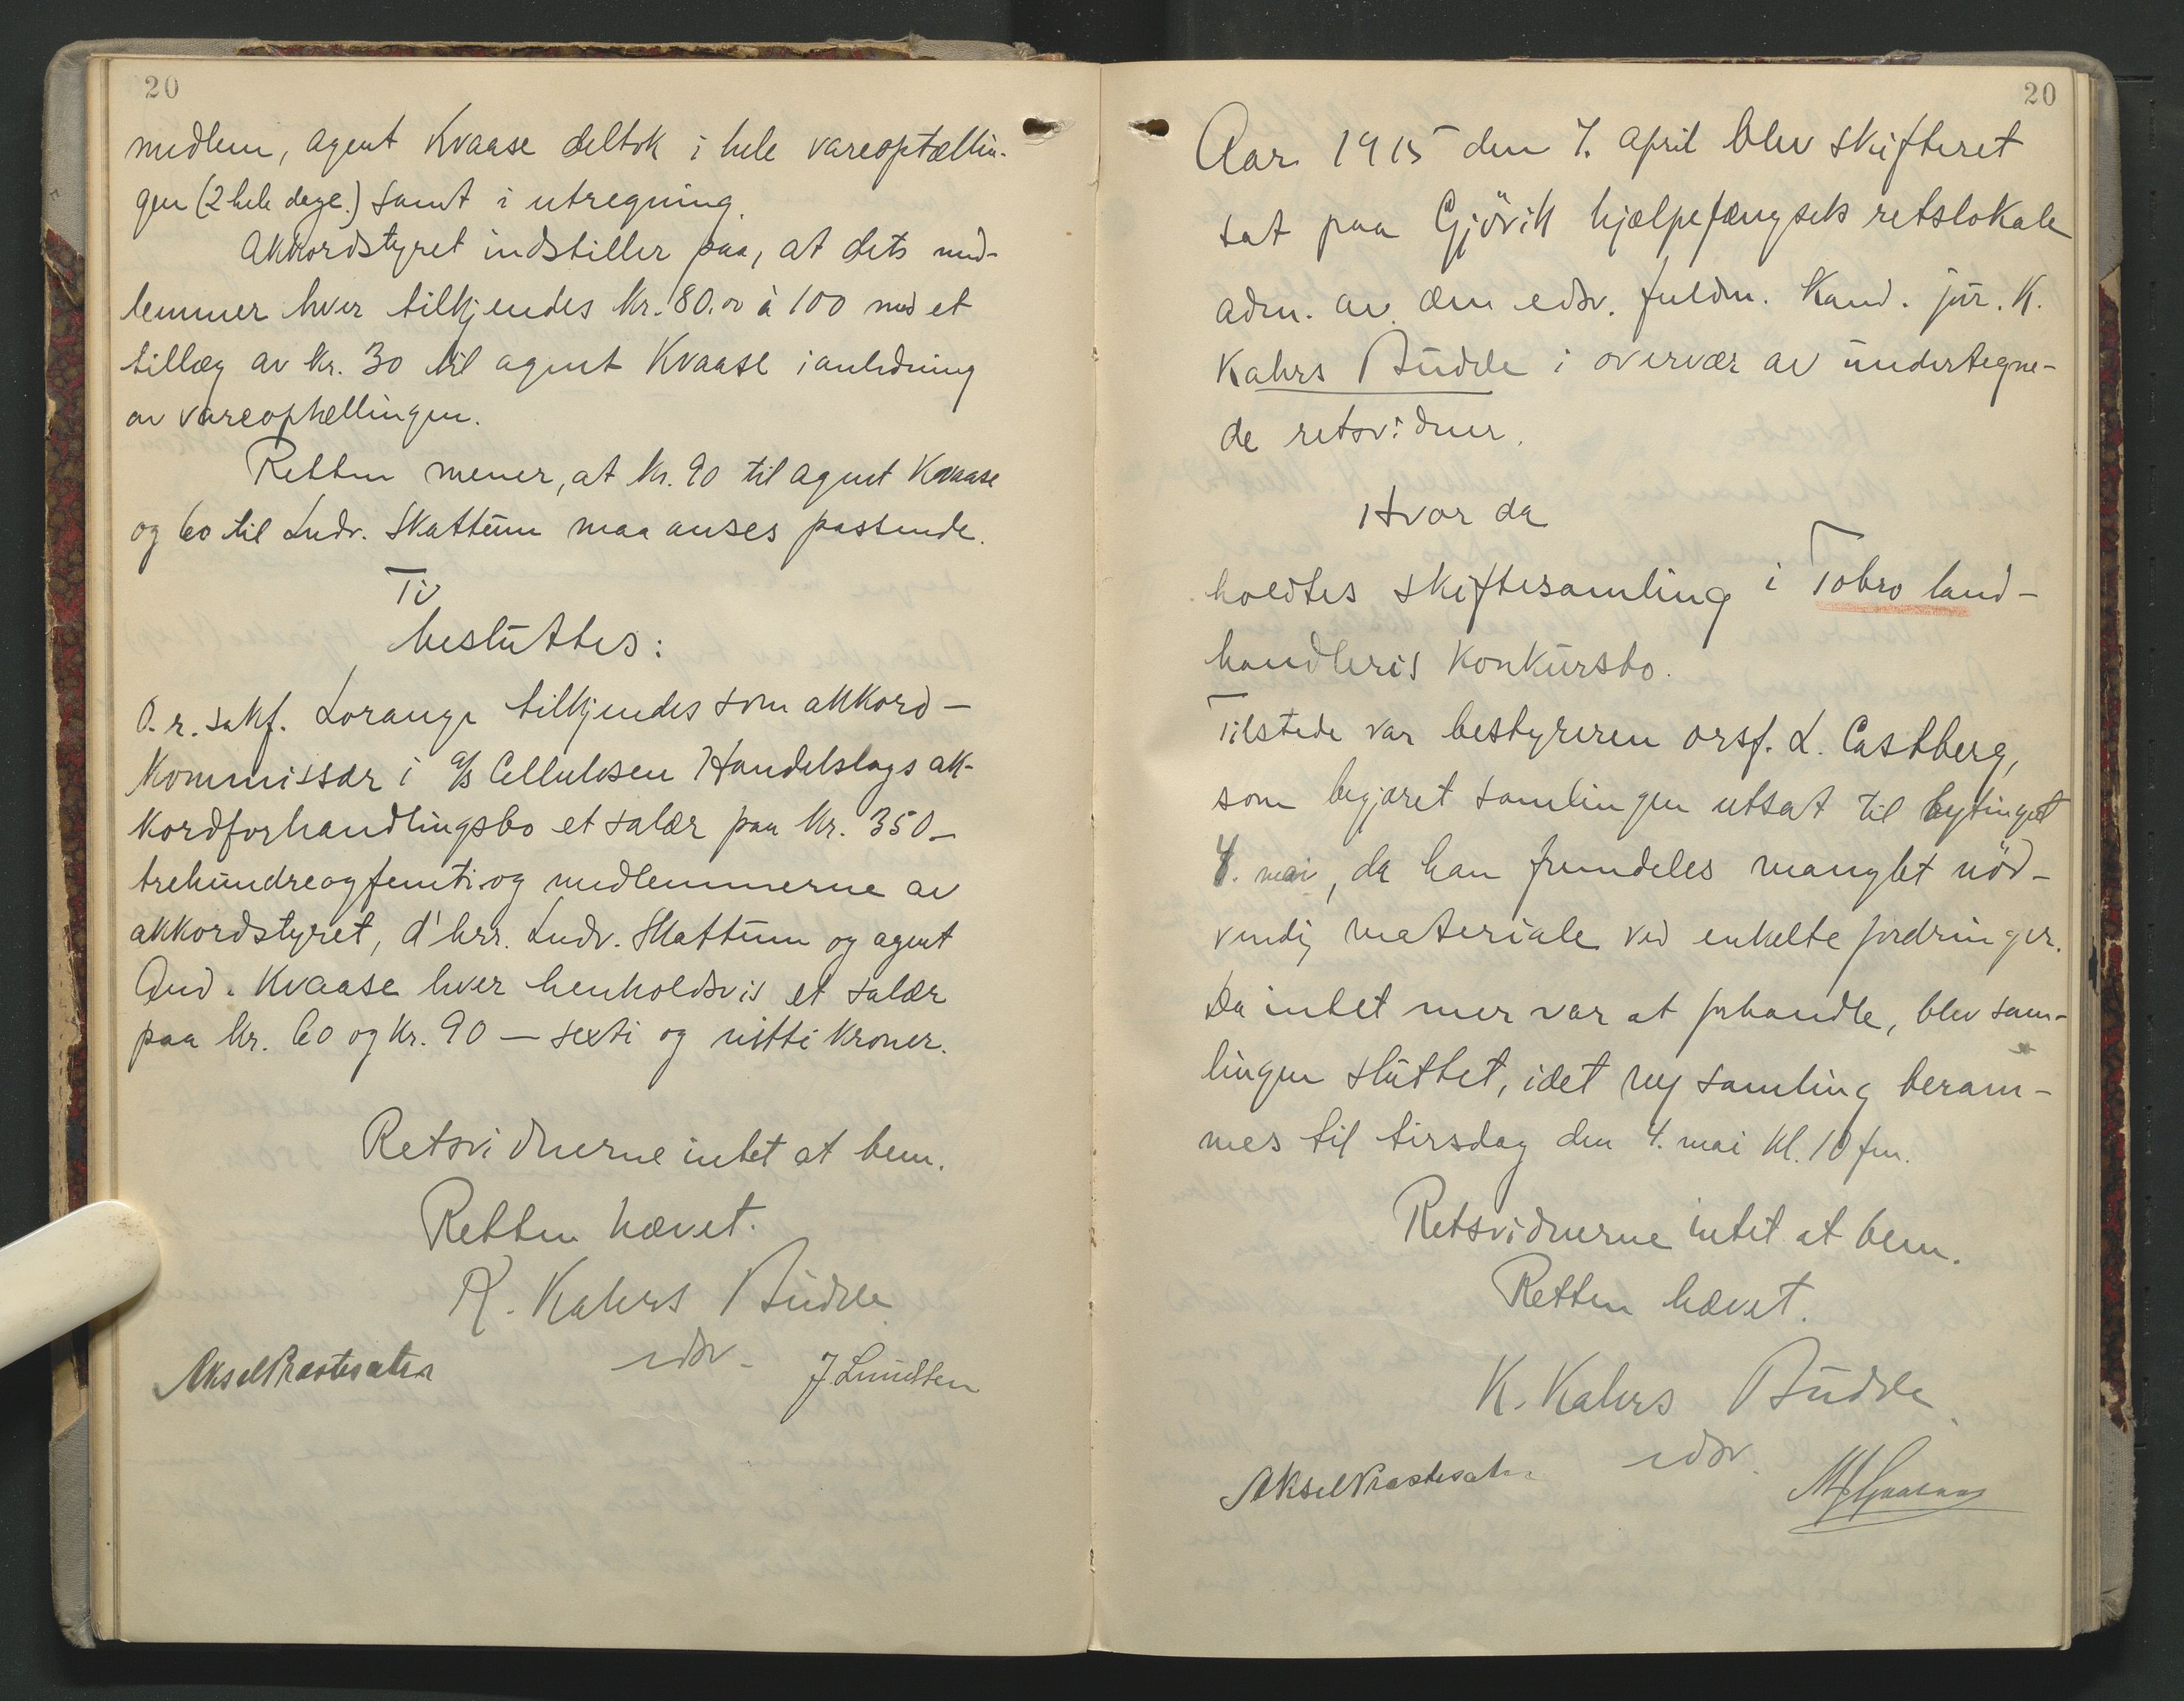 20
medlem, agent Kvaase deltok i hele vareoptællin-
gen (2 hele dage.) samt i utregning.
Akkordstyret indstiller paa, at dets med-
lemmer hver tilkjendes kr. 80.00 à 100 med et
tillæg av kr. 30 til agent Kvaase i anledning
av vareoptællingen.
Retten mener, at kr. 90 til agent Kvaase
og 60 til Ludv. Skattum maa anses passende.
Ti
besluttes:
O.r.sakf. Lorange tilkjendes som akkord-
kommissær i A/S Cellulosen Handelslags ak-
kordforhandlingsbo et salær paa kr. 350 -
trehundreogfemti og medlemmerne av
akkordstyret, d'hrr. Ludv. Skattum og agent
And. Kvaase hver henholdsvis et salær
paa kr. 60 og kr. 90 - sexti og nitti kroner.
Retsvidnerne intet at bem.
Retten hævet.
K. Kahrs Budde
edsv.
Aksel Præstesæter
J. Lundsten
20
Aar 1915 den 7. april blev skifteret
sat paa Gjövik hjælpefængsels retslokale
adm. av den edsv. fuldm. Kand. jur. K.
Kahrs Budde i overvær av undertegne-
de retsvidner.
Hvor da
holdtes skiftesamling i Tobro land-
handleris konkursbo.
Tilstede var bestyreren orsf. L. Castberg,
som begjæret samlingen utsat til bytinget
4. mai, da han fremdeles manglet nöd-
vendig materiale ved enkelte fordringer.
Da intet mer var at forhandle, blev sam-
lingen sluttet, idet ny samling beram-
mes til tirsdag den 4. mai kl. 10 fm.
Retsvidnerne intet at bem.
Retten hævet.
K. Kahrs Budde
edsv.
Aksel Præstesæter